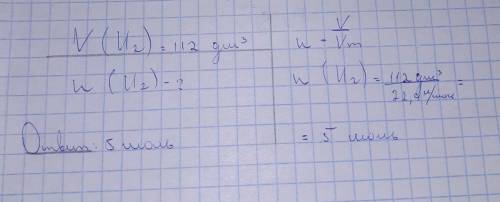 V (И₂) = 112 дм³
n (И₂) - ?
Ответ: 5 моль
n = V/Vm
n (И₂) = 112 дм³ / 22,4 л/моль =
= 5 моль